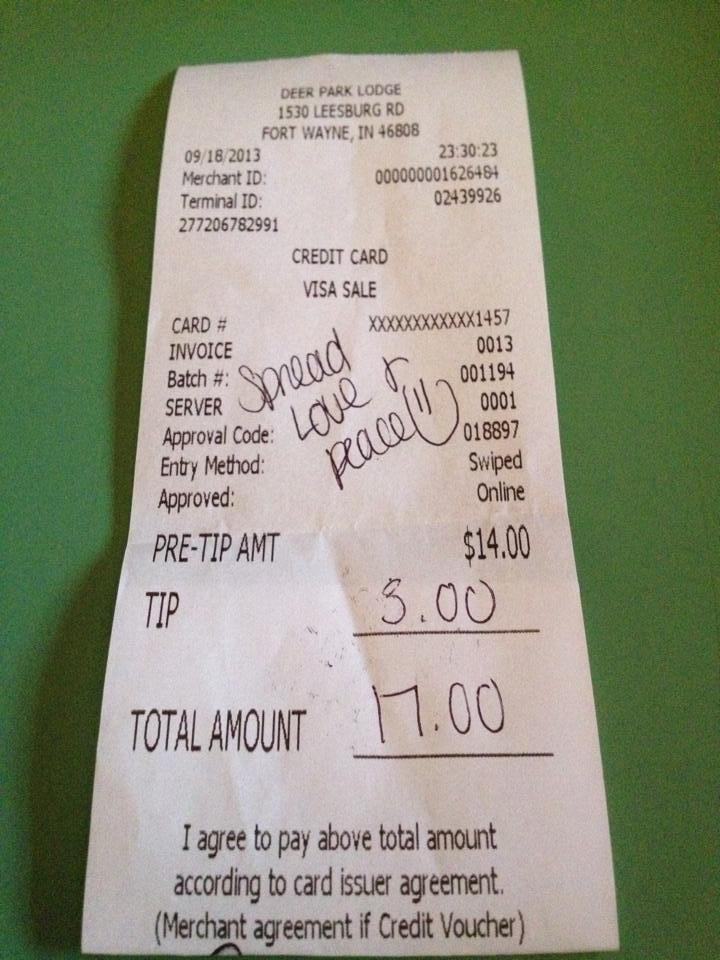 DEER PARK LODGE
1530 LEESBURG RD
FORT WAYNE, IN 46808
09/18/2013 23:30:23
Merchant ID: 000000001626484
Terminal ID: 02439926
277206782991
CREDIT CARD
VISA SALE
CARD # XXXXXXXXXXXX1457
INVOICE 0013
Batch #: 001194
SERVER 0001
Approval Code: 018897
Entry Method: Swiped
Approved: Online
Spread
Love &
peace
PRE-TIP AMT $14.00
TIP 3.00
TOTAL AMOUNT 17.00
I agree to pay above total amount
according to card issuer agreement.
(Merchant agreement if Credit Voucher)